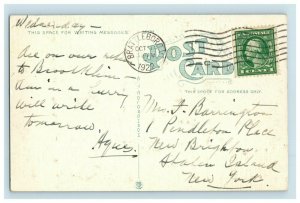 Wednesday –
THIS SPACE FOR WRITING MESSAGES
POST
CARD
THIS SPACE FOR ADDRESS ONLY.
BRATTLEBORO
OCT
1920
CENTS
Are on our return
to Brooklin –
Am in a hurry
will write
tomorrow.
Agnes.
Mr. F. Barrington
1 Pendleton Place
New Brighton
Staten Island
New York.